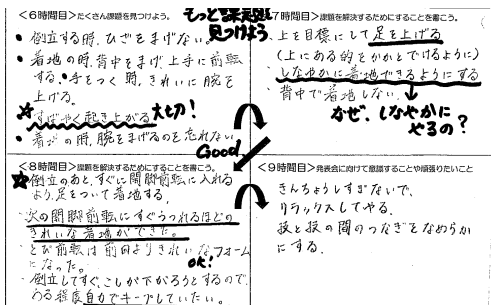 <6時間目>たくさん課題を見つけよう。
もっと課題見つけよう
・倒立する時、ひざをまげない。
・着地の時、背中をまげ、上手に前転
する。・手をつく時、きれいに腕を
上げる。
☆すばやく起き上がる 大切!
・着地の時、腕をまげるのを忘れない
Good
<7時間目>課題を解決するためにすることを書こう。
・上を目標にして足を上げる
(上にある的をかかとでけるように)
・しなやかに着地できるようにする
・背中で着地しない。
なぜ、しなやかに
やるの?
<8時間目>課題を解決するためにすることを書こう。
☆倒立のあと、すぐに開脚前転に入れる
よう、足をついて着地する。
次の開脚前転にすぐうつれるほどの
きれいな着地ができた。
・とび前転は前回よりきれいなフォーム
になった。
OK!
・倒立してすぐ、こしが下がろうとするので、
ある程度自力でキープしていたい。
<9時間目>発表会に向けて意識することや頑張りたいこと
きんちょうしすぎないで、
リラックスしてやる。
技と技の間のつなぎをなめらか
にする。